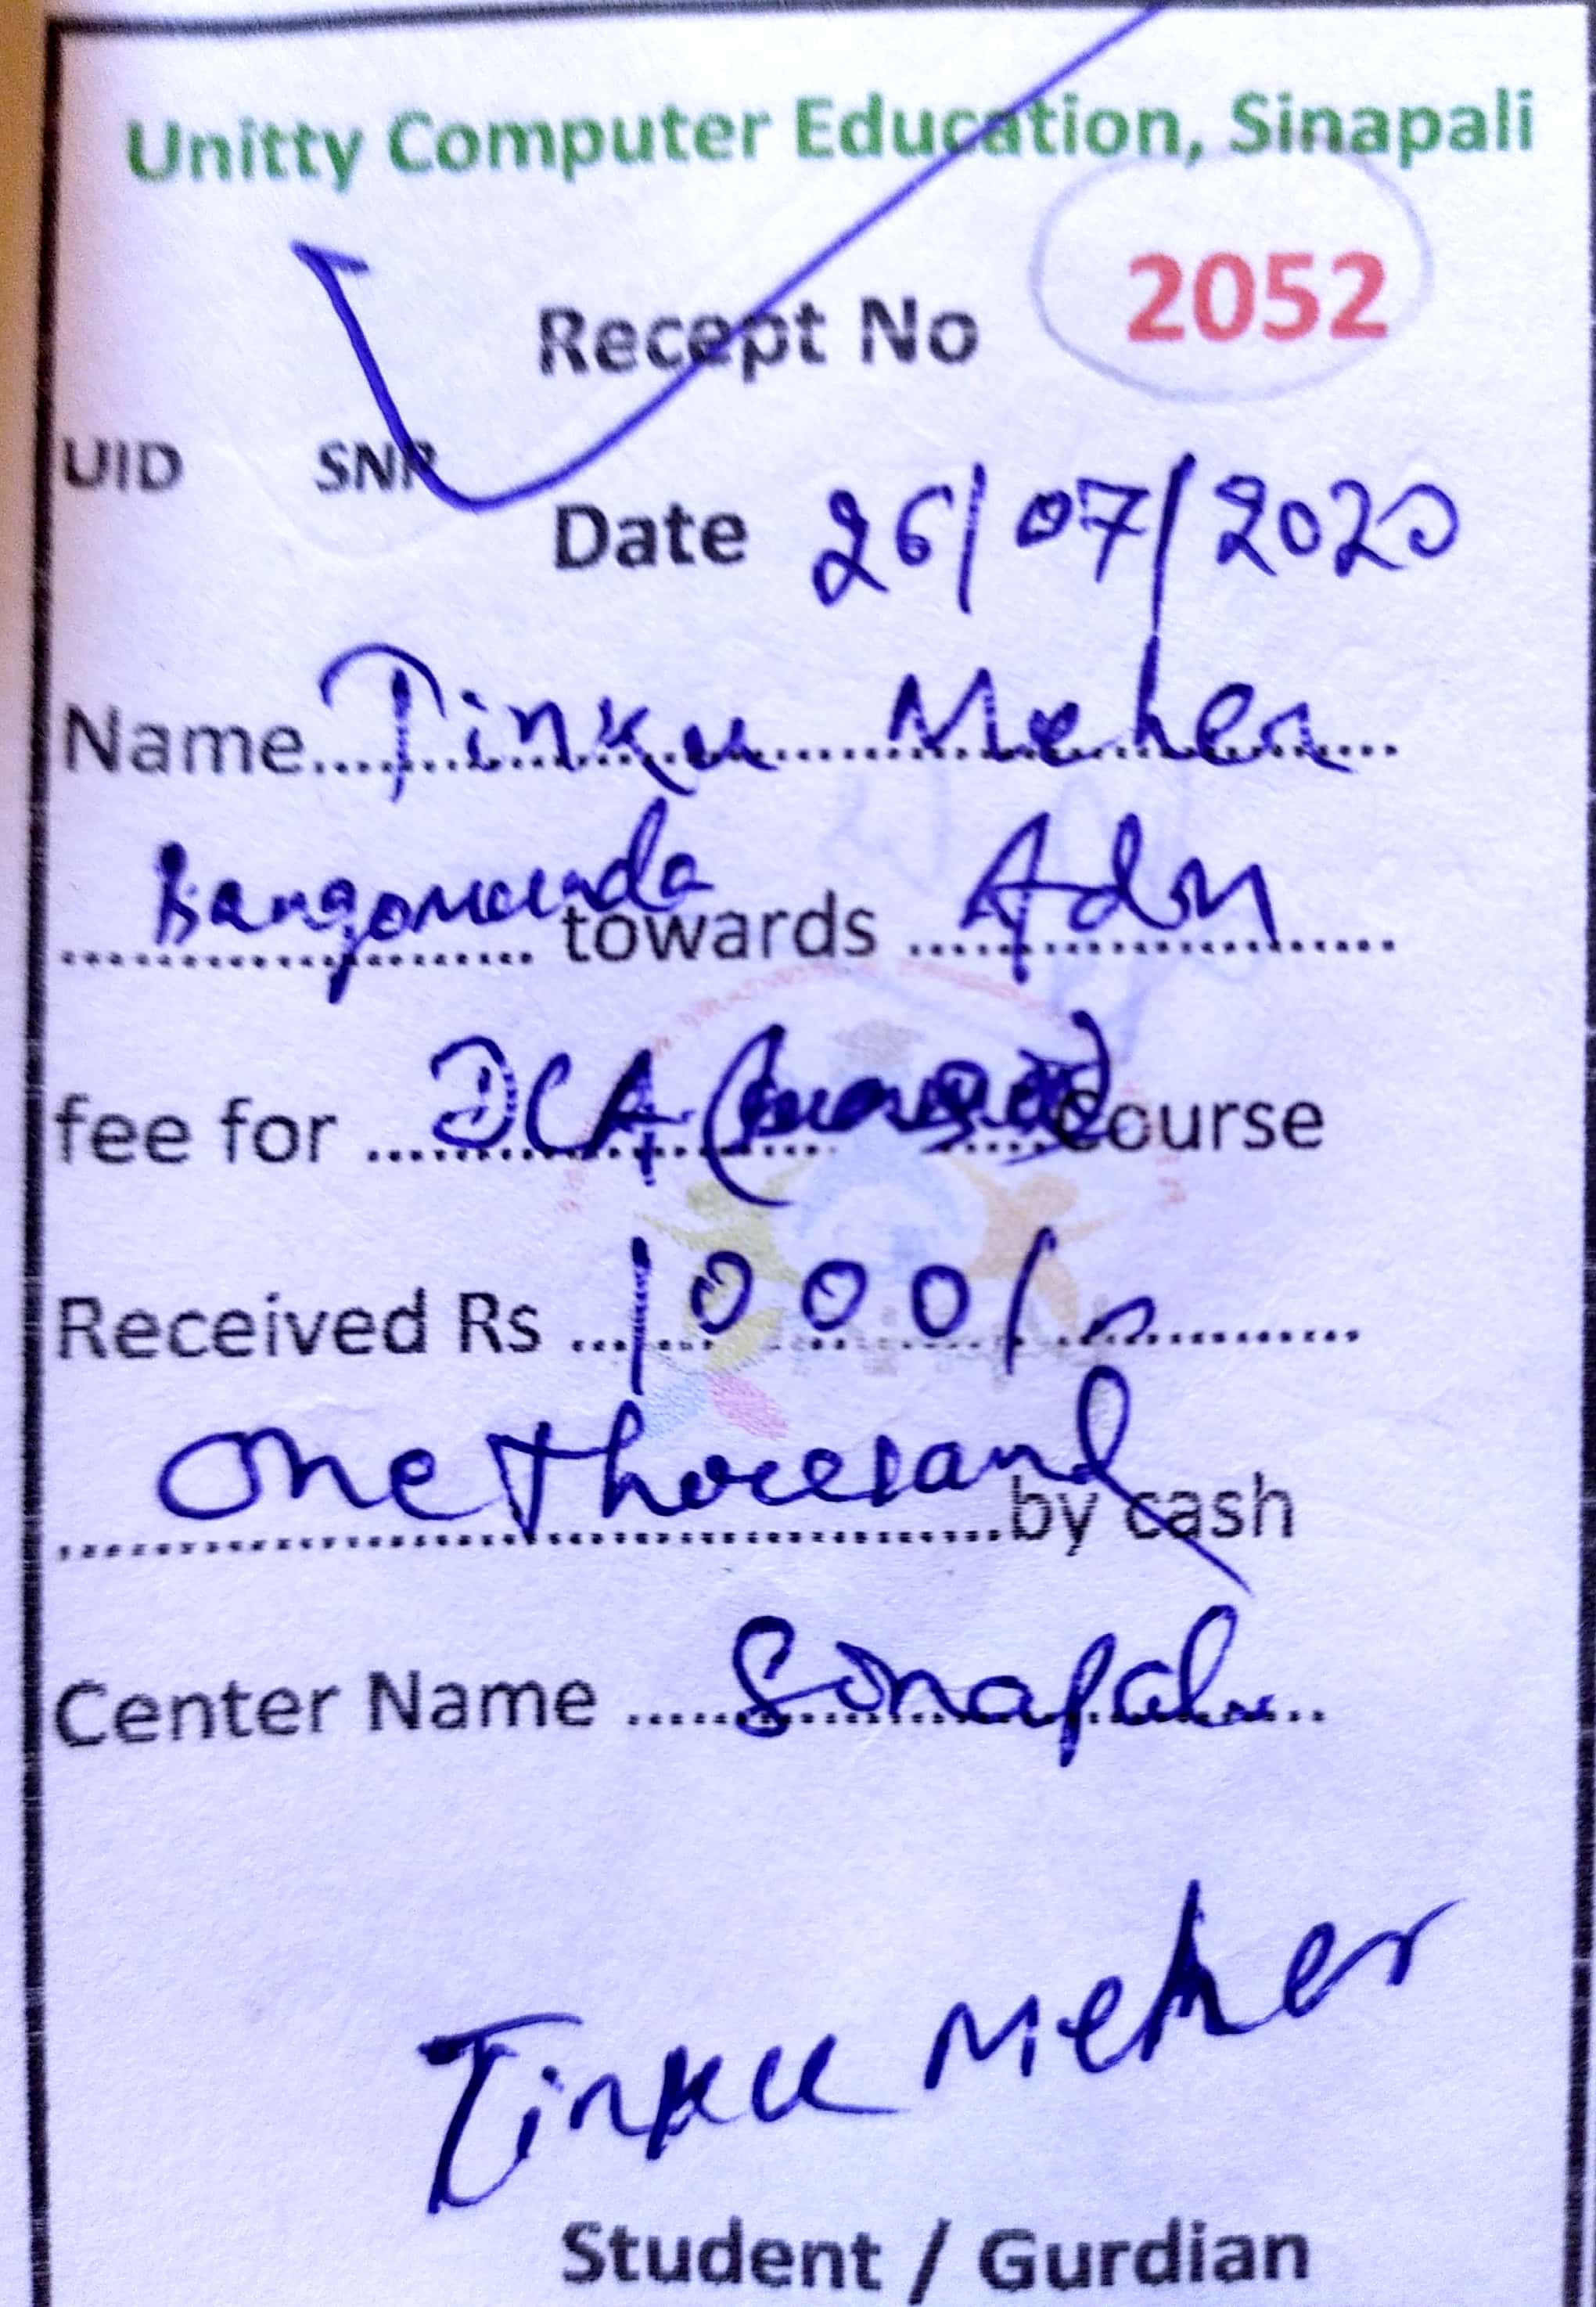 Unitty Computer Education, Sinapali
Recept No 2052
UID SNR
Date 26/07/2020
Name Tinku Meher
Bangomunda towards Adm
fee for DCA course
Received Rs 1000/-
One thousand by cash
Center Name Sinapali
Tinku Meher
Student / Gurdian